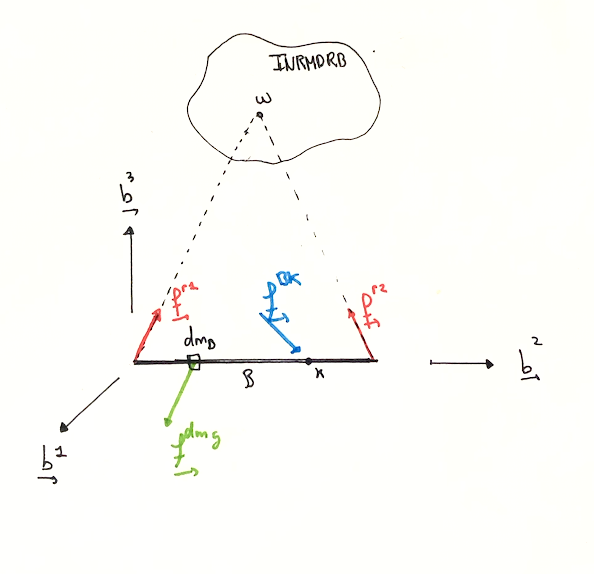 INRMDRB
w
b³
f^r1
f^BK
f^r2
dm_B
B
x
b²
f^dmg
b¹